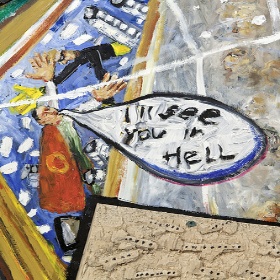 I'll see
you in
HELL